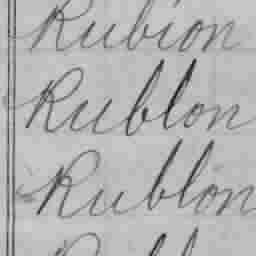 Rubion
Rublon
Rublon